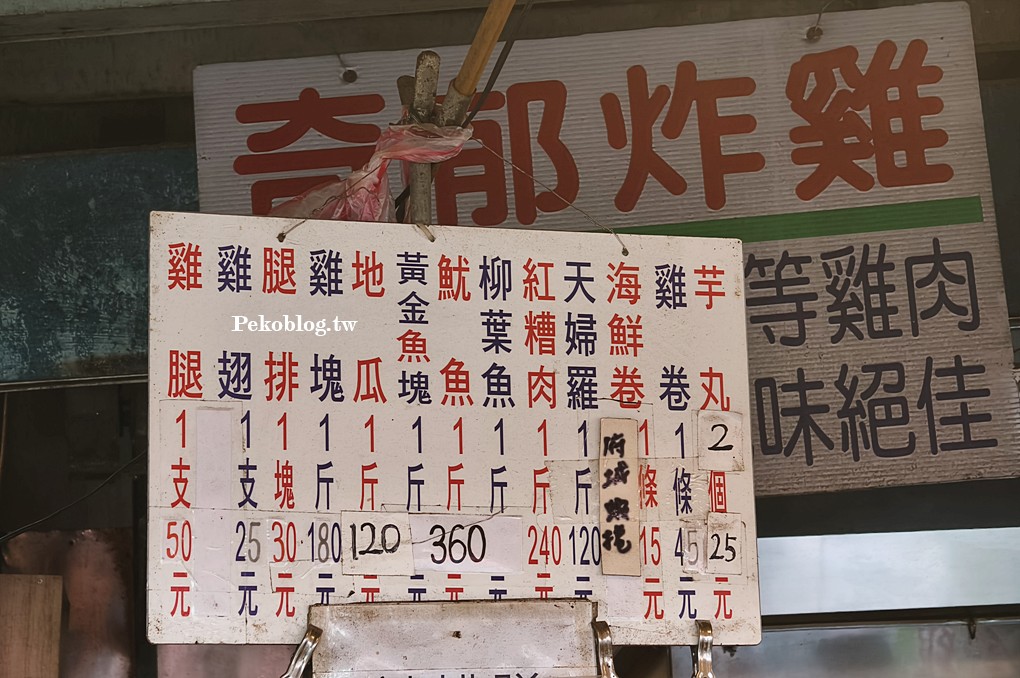 奇郁炸雞
等雞肉
味絕佳
雞腿1支50元
雞翅1支25元
腿排1塊30元
雞塊1斤180元
地瓜1斤120元
黃金魚塊1斤元
魷魚1斤360元
柳葉魚1斤元
紅糟肉1斤240元
天婦羅1斤120元
府城蝦捲
海鮮卷1條15元
雞卷1條45元
芋丸2個25元
Pekoblog.tw